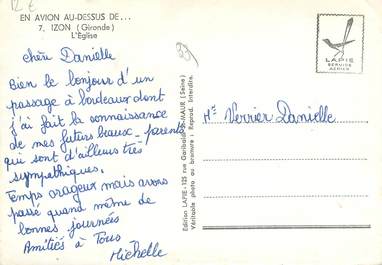 12 €
EN AVION AU-DESSUS DE...
7. IZON (Gironde)
L'Église
chère Danielle
Bien le bonjour d'un
passage à bordeaux dont
j'ai fait la connaissance
de mes futurs beaux-parents
qui sont d'ailleurs très
sympathiques.
Temps orageux mais avons
passé quand même de
bonnes journées
Amitiés à Tous
Michelle
33
Edition LAPIE - 125 rue Garibaldi, St-MAUR (Seine)
Véritable photo au bromure : Reprod. Interdite.
LAPIE
SERVICE
AÉRIEN
Verrier Danielle